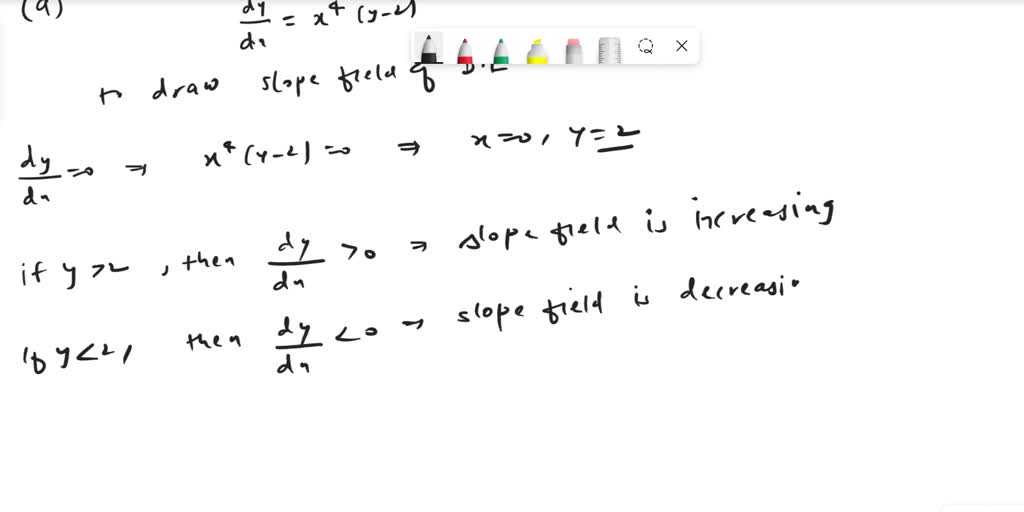 (a) dy/dx = x⁴ (y-2)
to draw slope field of D.E
dy/dx =0 ⇒ x⁴ (y-2) =0 ⇒ x=0, y=2
if y>2, then dy/dx >0 ⇒ slope field is increasing
if y<2, then dy/dx <0 → slope field is decreasi